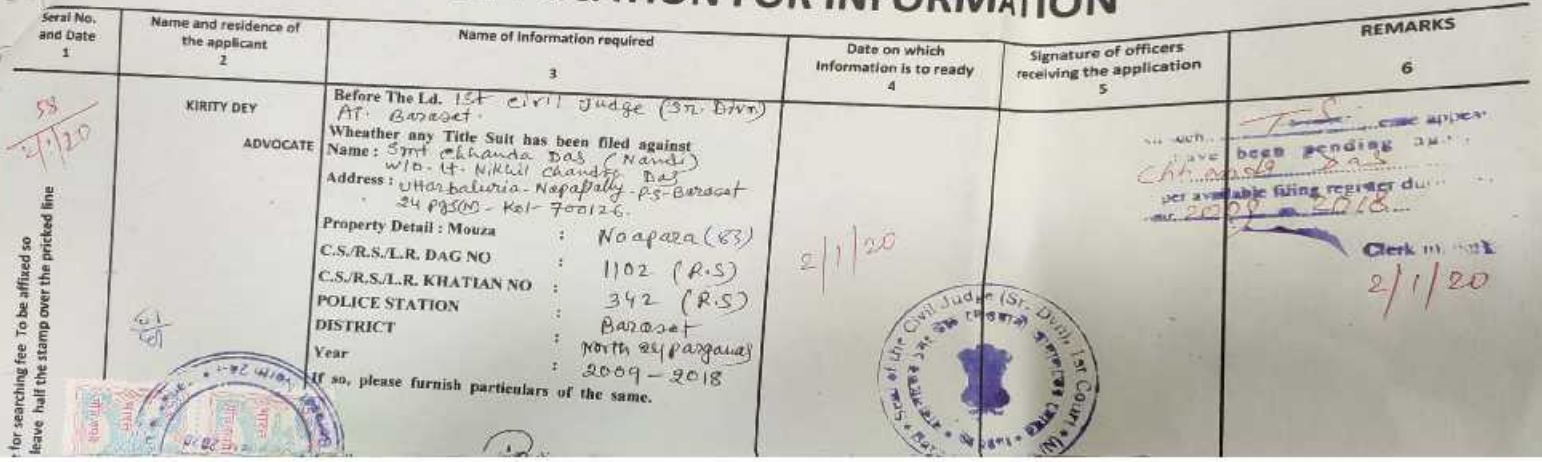 FOR INFORMATION
Seral No. and Date
1
Name and residence of the applicant
2
Name of Information required
3
Date on which Information is to ready
4
Signature of officers receiving the application
5
REMARKS
6
58
2/1/20
KIRITY DEY
ADVOCATE
Before The Ld. 1st civil Judge (Sr. Divn)
At. Baraset.
Wheather any Title Suit has been filed against
Name : Smt Chhanda Das (Nandi)
W/O. Lt. Nikhil Chandra Das
Address : Uttarbaluria - Napapally - P.S - Baraset
24 Pgs(N) - Kol - 700126.
Property Detail : Mouza : Noapara (83)
C.S./R.S./L.R. DAG NO : 1102 (R.S)
C.S./R.S./L.R. KHATIAN NO : 342 (R.S)
POLICE STATION : Baraset
DISTRICT : North 24 parganas
Year : 2009 - 2018
If so, please furnish particulars of the same.
2/1/20
such T.S. case appear
have been pending
Chhanda Das
per available filing register
2009 2018
Clerk
2/1/20
of the Civil Judge (Sr. Divn), 1st Court
for searching fee To be affixed so
leave half the stamp over the pricked line